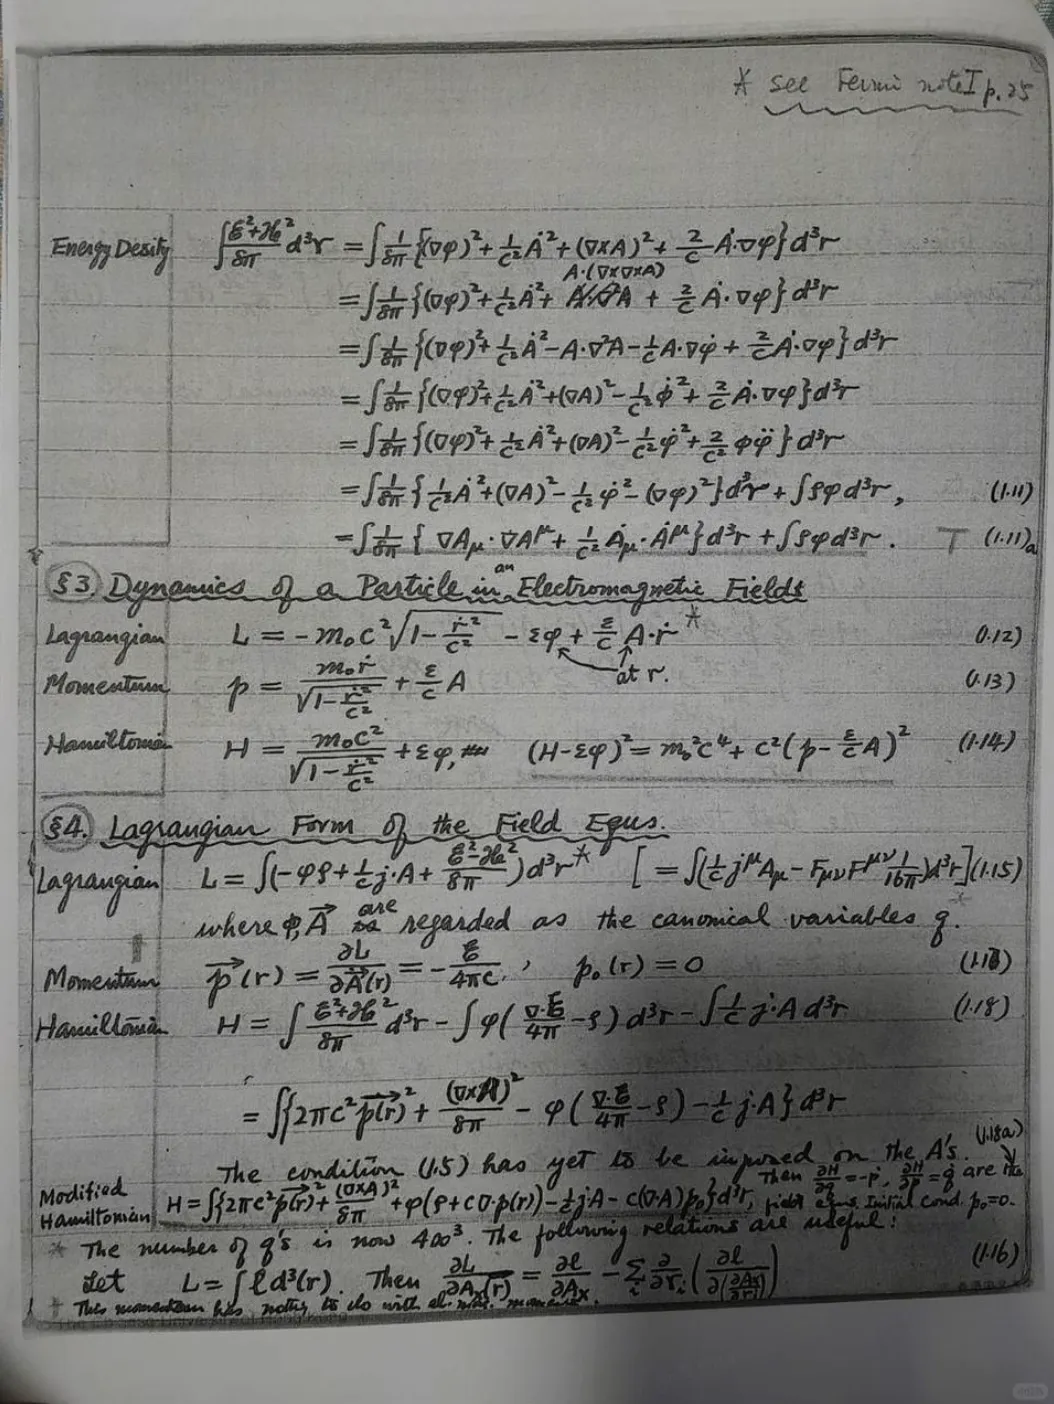 * see Fermi note I p. 25
Energy Desity ∫ (ℰ²+ℋ²)/8π d³r = ∫ 1/8π {(∇φ)² + 1/c² Ȧ² + (∇×A)² + 2/c Ȧ·∇φ} d³r
A·(∇×∇×A)
= ∫ 1/8π {(∇φ)² + 1/c² Ȧ² + + 2/c Ȧ·∇φ} d³r
= ∫ 1/8π {(∇φ)² + 1/c² Ȧ² − A·∇²A − 1/c A·∇φ̇ + 2/c Ȧ·∇φ} d³r
= ∫ 1/8π {(∇φ)² + 1/c² Ȧ² + (∇A)² − 1/c² φ̇² + 2/c Ȧ·∇φ} d³r
= ∫ 1/8π {(∇φ)² + 1/c² Ȧ² + (∇A)² − 1/c² φ̇² + 2/c² φφ̈} d³r
= ∫ 1/8π {1/c² Ȧ² + (∇A)² − 1/c² φ̇² − (∇φ)²} d³r + ∫ρφ d³r, (1.11)
= ∫ 1/8π {∇A_μ·∇A^μ + 1/c² Ȧ_μ·Ȧ^μ} d³r + ∫ρφ d³r. (1.11)a
§3. Dynamics of a Particle in an Electromagnetic Fields
Lagrangian L = −m₀c² √(1 − ṙ²/c²) − εφ + ε/c A·ṙ * (1.12)
at r.
Momentum p = m₀ṙ/√(1 − ṙ²/c²) + ε/c A (1.13)
Hamiltonian H = m₀c²/√(1 − ṙ²/c²) + εφ, (H−εφ)² = m₀²c⁴ + c²(p − ε/c A)² (1.14)
§4. Lagrangian Form of the Field Equs.
Lagrangian L = ∫(−φρ + 1/c j·A + (ℰ²−ℋ²)/8π) d³r * [= ∫(1/c j^μ A_μ − F_μν F^μν 1/16π) d³r] (1.15)
where φ, A⃗ are regarded as the canonical variables q.*
Momentum p⃗(r) = ∂L/∂A⃗̇(r) = −ℰ/4πc, p₀(r) = 0
Hamiltonian H = ∫ (ℰ²+ℋ²)/8π d³r − ∫ φ(∇·ℰ/4π − ρ) d³r − ∫ 1/c j·A d³r (1.18)
= ∫{2πc² p⃗(r)² + (∇×A)²/8π − φ(∇·ℰ/4π − ρ) − 1/c j·A} d³r
The condition (1.5) has yet to be imposed on the A's. (1.18a)
Modified Hamiltonian H = ∫{2πc² p⃗(r)² + (∇×A)²/8π + φ(ρ + c∇·p(r)) − 1/c j·A − c(∇·A)p₀} d³r, Then ∂H/∂q = −ṗ, ∂H/∂p = q̇ are the
field equs. Initial cond. p₀=0.
* The number of q's is now 4∞³. The following relations are useful:
Let L = ∫ ℓ d³(r). Then ∂L/∂Aₓ(r) = ∂ℓ/∂Aₓ − Σᵢ ∂/∂rᵢ (∂ℓ/∂(∂Aₓ/∂rᵢ)) (1.16)
† This momentum has nothing to do with